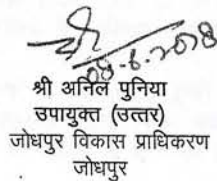 08-6-2018
श्री अनिल पुनिया
उपायुक्त (उत्तर)
जोधपुर विकास प्राधिकरण
जोधपुर